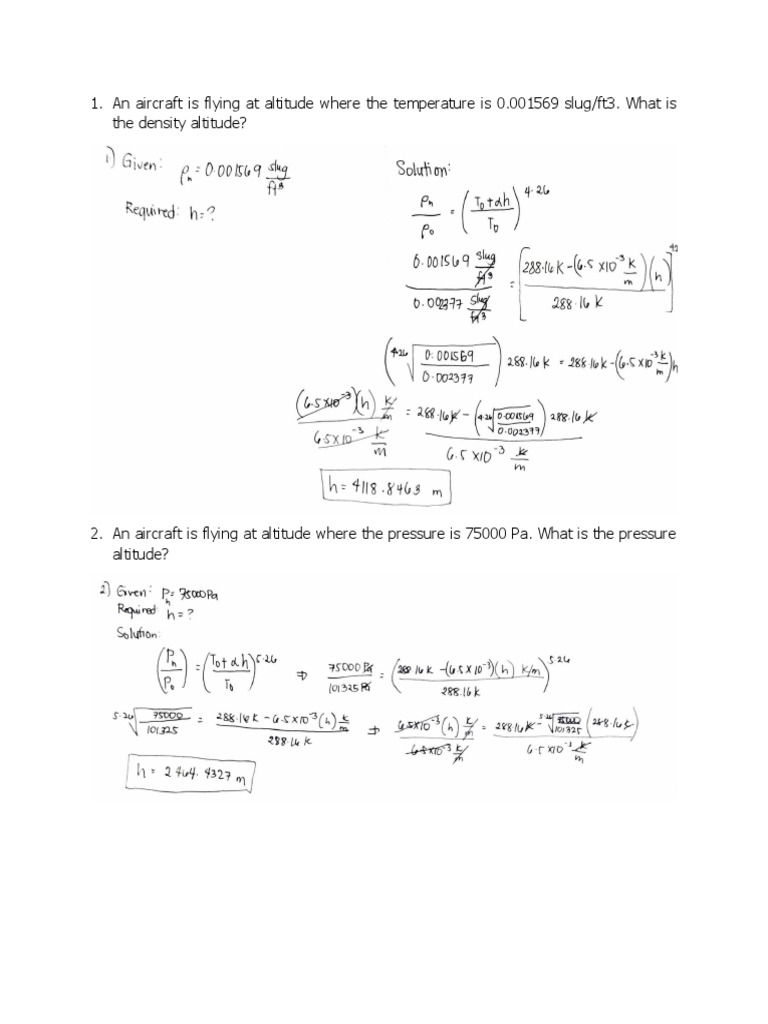 1. An aircraft is flying at altitude where the temperature is 0.001569 slug/ft3. What is
the density altitude?
1) Given: ρₕ = 0.001569 slug/ft³
Required: h = ?
Solution:
ρₕ/ρ₀ = ((T₀ + αh)/T₀)^4.26
(0.001569 slug/ft³)/(0.002377 slug/ft³) = [(288.16K - (6.5 x10^-3 k/m)(h))/(288.16 K)]^42
(4.26√(0.001569/0.002377)) 288.16k = 288.16k - (6.5x10^-3 k/m)h
((6.5x10^-3)(h) k/m)/(6.5x10^-3 k/m) = (288.16k - (4.26√(0.001569/0.002377)) 288.16k)/(6.5 x10^-3 k/m)
h = 4118.8463 m
2. An aircraft is flying at altitude where the pressure is 75000 Pa. What is the pressure
altitude?
2) Given: Pₕ = 75000Pa
Required: h = ?
Solution:
(Pₕ/P₀) = ((T₀ + αh)/T₀)^5.26 ⇒ (75000 Pa)/(101325 Pa) = ((288.16k - (6.5 x 10^-3)(h) k/m)/(288.16k))^5.26
5.26√(75000/101325) = (288.16k - 6.5x10^-3 (h) k/m)/(288.16 k) ⇒ (6.5x10^-3 (h) k/m)/(6.5x10^-3 k/m) = (288.16k - 5.26√(75000/101325) (288.16k))/(6.5x10^-3 k/m)
h = 2464.4327 m